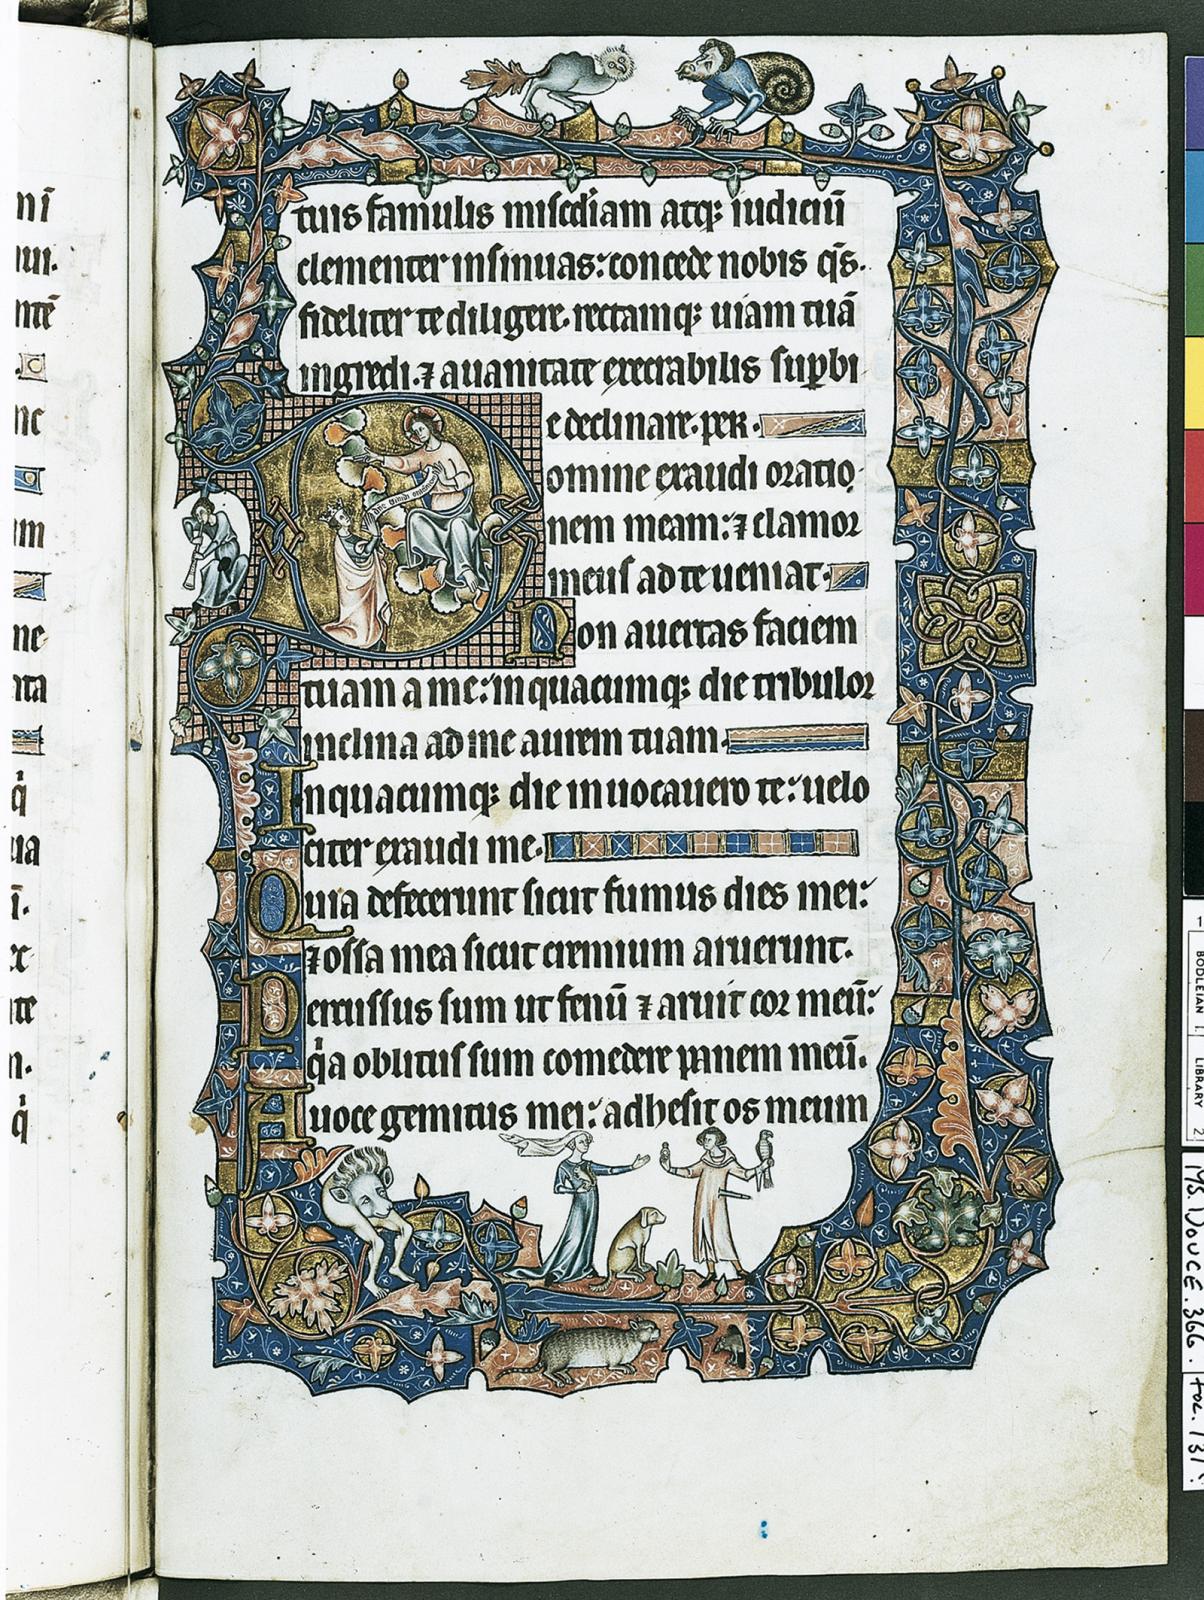 tuis famulis misc̄diam atq; iudiciū
clementer insinuas: concede nobis q̄s.
fideliter te diligere. rectamq; uiam tuā
ingredi. ⁊ auanitate execrabilis sup̄bi
e declinare. per.
Domine exaudi oratio
nem meam: ⁊ clamor
meus ad te ueniat.
Non auertas faciem
tuam a me: in quacumq; die tribulor
inclina ad me aurem tuam.
In quacumq; die inuocauero te: uelo
citer exaudi me.
Quia defecerunt sicut fumus dies mei:
⁊ ossa mea sicut cremium aruerunt.
Percussus sum ut fenū ⁊ aruit cor meū:
q̇a oblitus sum comedere panem meū.
A uoce gemitus mei: adhesit os meum
BODLEIAN LIBRARY
MS. DOUCE. 366. foe. 131r.